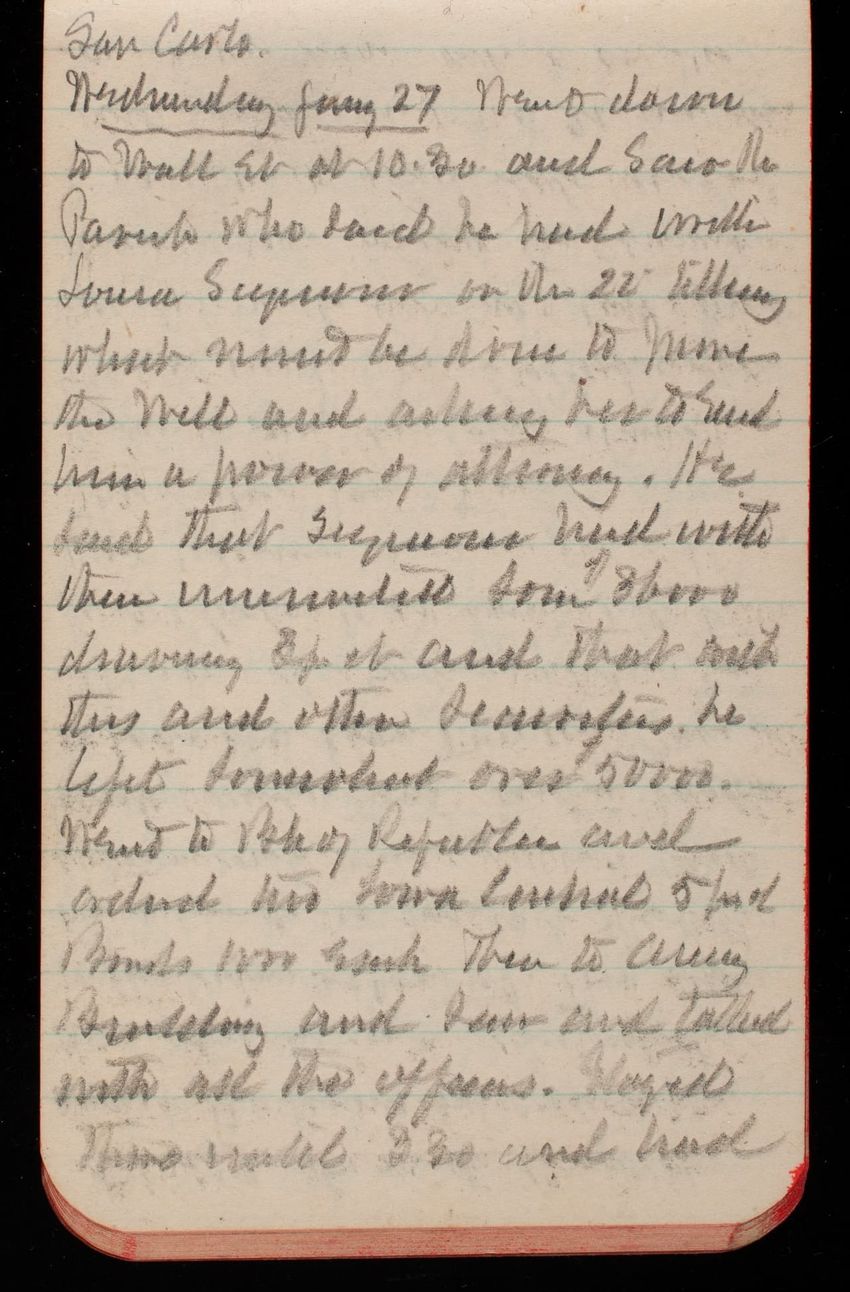 San Carlo.
Wednesday Jany 27 Went down
to Wall St at 10.30 and Saw Mr
Parish who said he had written
Louisa Seymour on the 22 telling
what must be done to prove
the Will and asking her to Send
him a power of attorney. He
said that Seymour had with
them uninvested some $8000
drawing 3 p ct and that with
this and other Securities he
left somewhat over $50000.
Went to Bk of Republic and
ordered two Iowa Central 5 p ct
Bonds 1000 Each Then to Army
Building and Saw and talked
with all the officers. Stayed
there until 3 30 and had